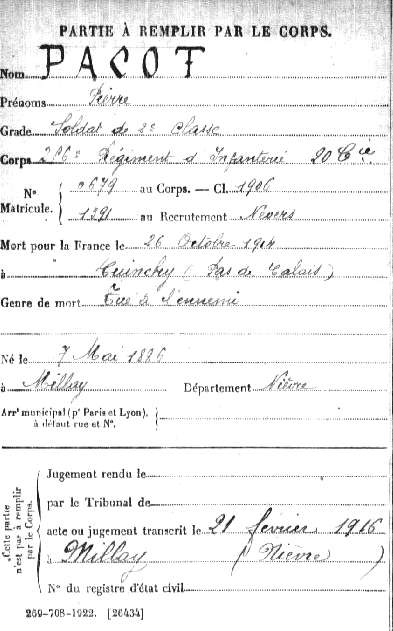 PARTIE À REMPLIR PAR LE CORPS.
Nom PACOT
Prénoms Pierre
Grade Soldat de 2e Classe
Corps 256e Régiment d'Infanterie 20 Cie
N° Matricule. 0679 au Corps. — Cl. 1906
1291 au Recrutement Nevers
Mort pour la France le 26 Octobre 1914
à Cuinchy (Pas de Calais)
Genre de mort Tué à l'ennemi
Né le 7 Mai 1886
à Millay Département Nièvre
Arrt municipal (pr Paris et Lyon),
à défaut rue et N°.
Cette partie n'est pas à remplir par le Corps.
Jugement rendu le
par le Tribunal de
acte ou jugement transcrit le 21 février 1916
à Millay (Nièvre)
N° du registre d'état civil
269-708-1922. [26434]